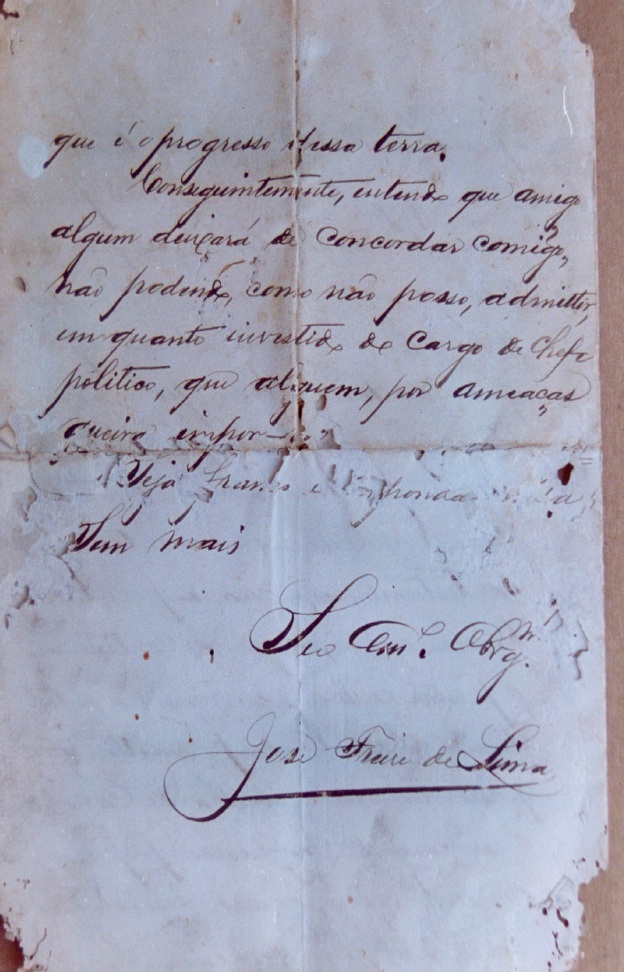 que é o progresso dessa terra.
Conseguintemente, entendo que amigo
algum deixará de concordar comigo,
não podendo, como não posso, admittir,
em quanto investido do cargo de Chefe
politico, que alguem, por ameaças
queira impor-
Veja Franco e
Sem mais
Seo Am.º Obrg.
José Freire de Lima